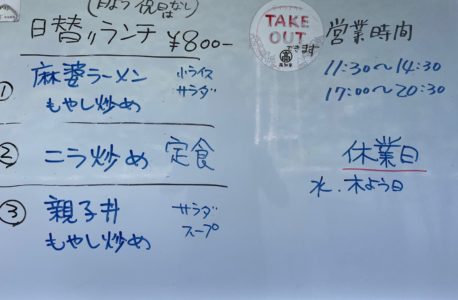 (日よう 祝日なし)
日替りランチ ¥800-
① 麻婆ラーメン 小ライス
もやし炒め サラダ
② ニラ炒め 定食
③ 親子丼 サラダ
もやし炒め スープ
TAKE
OUT
できます
営業時間
11:30〜14:30
17:00〜20:30
休業日
水、木よう日